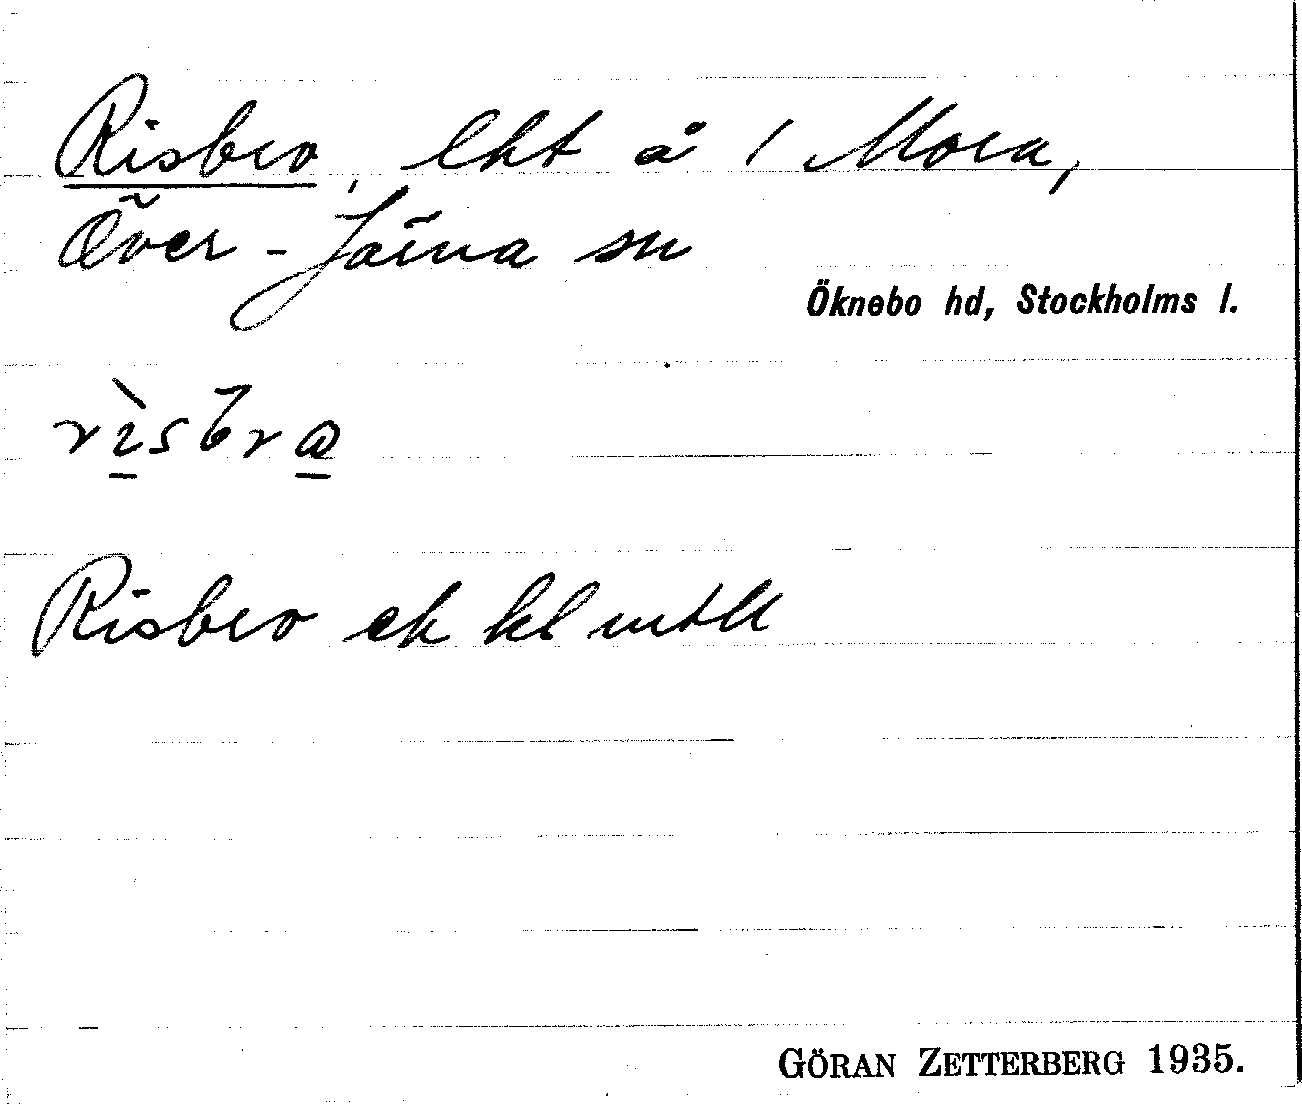 Risbro, lht å 1 Mora,
Över-Järna sn
Öknebo hd, Stockholms l.
rìsbrω
Risbro ek kl mtll
GÖRAN ZETTERBERG 1935.